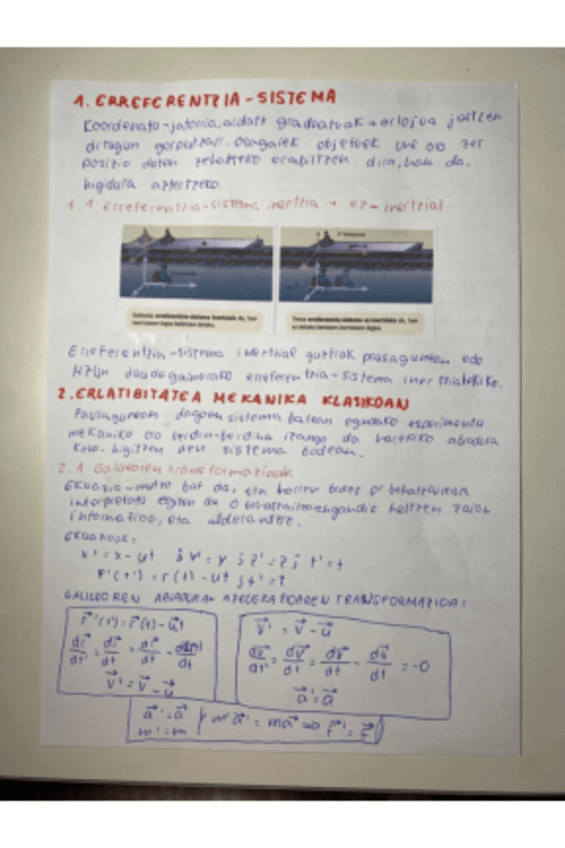 1. ERREFERENTZIA-SISTEMA
Koordenatu-jatorria, ardatz graduatuak + erlojua jartzen
ditugun gorputzari. Osagaiek objetuek une oro zer
posizio duten zehazteko erabiltzen dira, hau da,
higidura aztertzeko.
1.1 Erreferentzia-sistema inertzia + ez-inertzial
Erreferentzia-sistema inertzial guztiak pausagunean edo
HZUn daude gainerako erreferentzia-sistema inertzialekiko.
2. ERLATIBITATEA MEKANIKA KLASIKOAN
Pausagunean dagoen sistema batean egindako esperimentu
mekaniko oro berdin-berdina izango da abiadura
higitzen den sistema batean.
2.1 Galileoren transformazioak
Ekuazio-multzo bat da, eta horien bidez O' behatzaileak
interpretatu egiten du O behatzailearengandik heltzen zaion
informazioa, eta alderantziz.
EKUAZIOAK:
x' = x - ut ; y' = y ; z' = z ; t' = t
r'(t') = r(t) - ut ; t' = t
GALILEOREN ABIADURA AZELERAZIOAREN TRANSFORMAZIOA:
r⃗'(t') = r⃗(t) - u⃗t
dr⃗'/dt' = dr⃗'/dt = dr⃗/dt - d(u⃗t)/dt
v⃗' = v⃗ - u⃗
v⃗' = v⃗ - u⃗
dv⃗'/dt' = dv⃗'/dt = dv⃗/dt - du⃗/dt = -0
a⃗' = a⃗
a⃗' = a⃗
m' = m
m'a⃗' = ma⃗ ⇒ F⃗' = F⃗